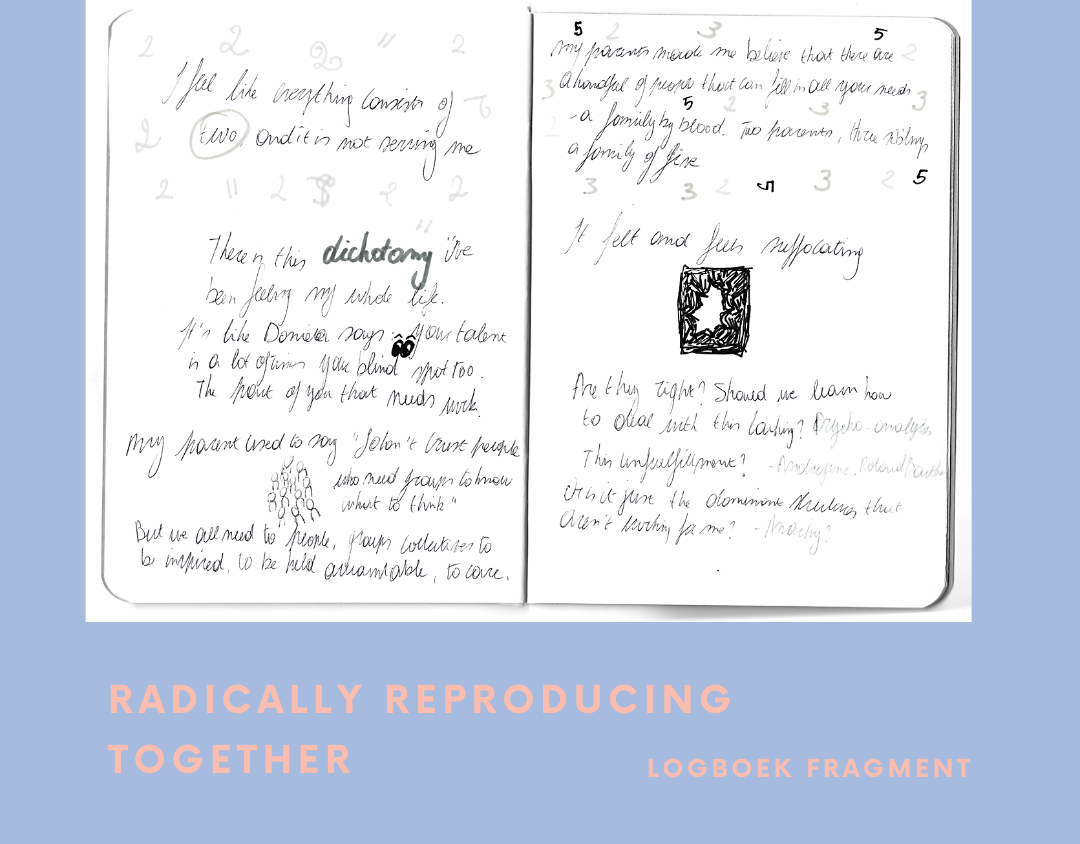 2 2 2 " 2
I feel like everything consists of
two and it is not serving me
2
2 " 2 3 2 2
"
There is this dichotomy i've
been feeling my whole life.
It's like Daniela says: your talent
is a lot of times your blind spot too.
The part of you that needs work.
My parent used to say "I don't trust people
who need groups to know
what to think"
But we all need to people, groups collectives to
be inspired, to be held accountable, to care.
5 2 3 5
my parents made me believe that there are 2
3 a handful of people that can fill in all your needs 3
5 2 3
2 - a family by blood. Two parents, three siblings
a family of five
3 3 2 5 3 2 5
It felt and feels suffocating
Are they right? Should we learn how
to deal with this lacking? Psycho-analysis
This unfulfillment? - Ambrosine, Roland Barthes
Or is it just the dominant structures that
aren't working for me? - Anarchy?
RADICALLY REPRODUCING
TOGETHER
LOGBOEK FRAGMENT